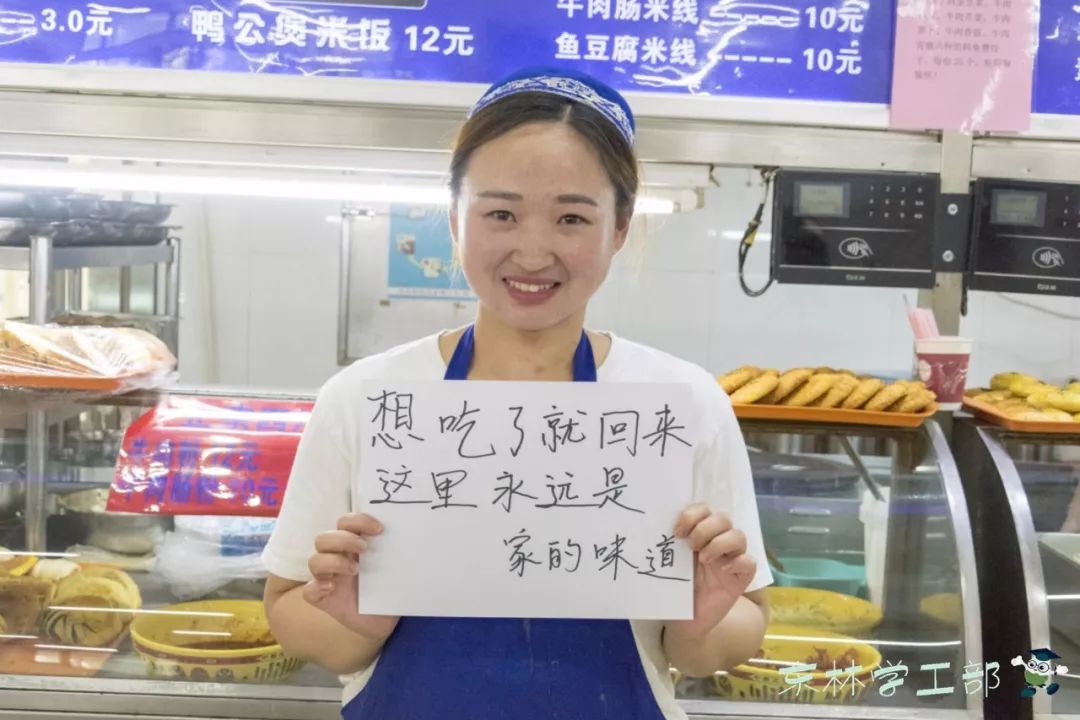 3.0元
鸭公煲米板 12元
牛肉肠米线 ----- 10元
鱼豆腐米线 ----- 10元
想吃了就回来
这里永远是
家的味道
东林学工部